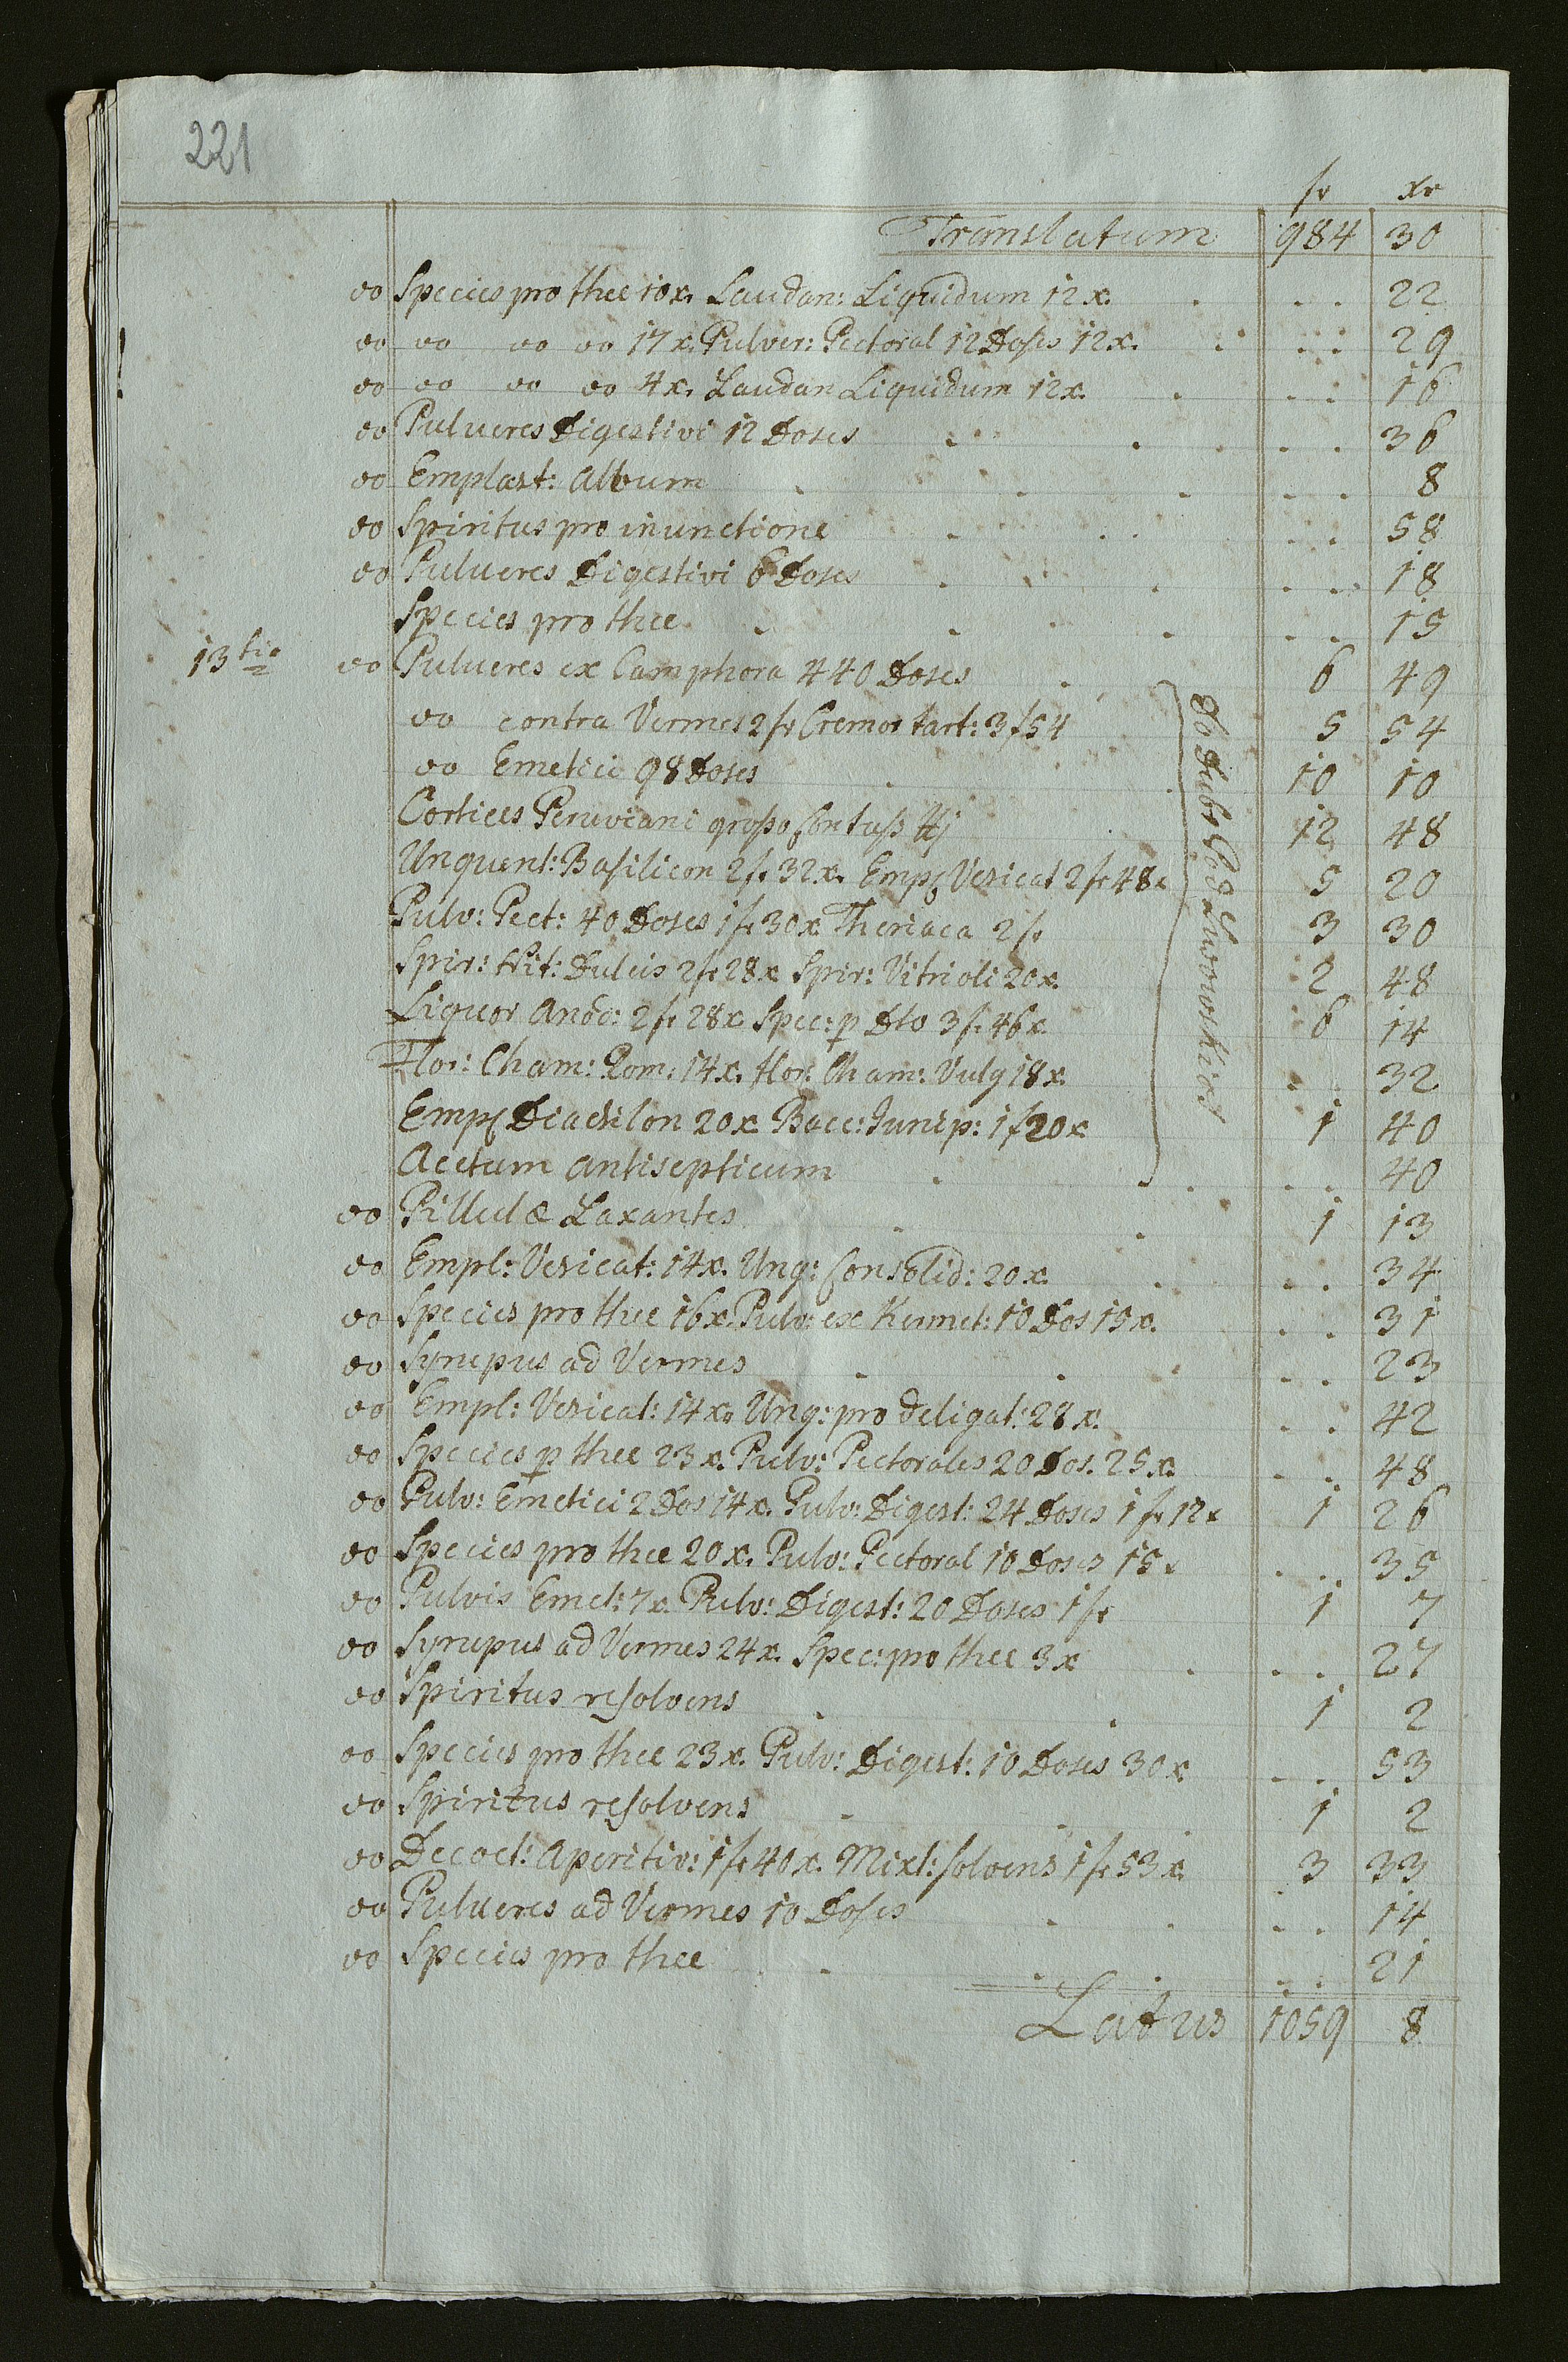 221
fr xr
Translatum 984 30
do Species pro thee 10x. Laudan: Liquidum 12x. 22
do do do do 17x. Pulver: Pectoral 12 Doses 12x. 29
do do do do 4x. Laudan Liquidum 12x. 16
do Pulveres Digestivi 12 Doses 36
do Emplast: album 8
do Spiritus pro inunctione 58
do Pulveres Digestivi 6 Doses 18
Species pro thee 15
13tio do Pulveres ex Camphora 440 Doses 6 49
do contra Vermes 2 fr Cremor tart: 3 f 54 5 54
do Emetici 98 Doses 10 10
Cortices Peruviani grosso Contuss ℔j 12 48
Unguent: Basilicon 2 fr 32x. Empl Vesicat 2 fr 48x 5 20
Pulv: Pect: 40 Doses 1 fr 30x Theriaca 2 fr 3 30
Spir: Nit: Dulcis 2 fr 28x Spir: Vitrioli 20x. 2 48
Liquor anod: 2 fr 28x Spec: p Dto 3 fr 46x 6 14
Flor: Cham: Rom: 14x. flor: Cham: Vulg 18x. 32
Empl Diachilon 20x Bacc: Junip: 1 f 20x 1 40
Acetum antisepticum 40
do Dubr Po Lwowskich
do Pillulæ Laxantes 1 13
do Empl: Vesicat: 14x. Ung: Consolid: 20x. 34
do Species pro thee 16x. Pulv: ex Kermet: 10 Dos 15x. 31
do Syrupus ad Vermes 23
do Empl: Vesicat: 14x. Ung: pro deligat: 28x. 42
do Species p thee 23x. Pulv: Pectorales 20 Dos. 25x. 48
do Pulv: Emetici 2 Dos 14x. Pulv: Digest: 24 Doses 1 fr 12x 1 26
do Species pro thee 20x. Pulv: Pectoral 10 Doses 15x 35
do Pulvis Emet: 7x. Pulv: Digest: 20 Doses 1 fr 1 7
do Syrupus ad Vermes 24x. Spec: pro thee 3x 27
do Spiritus resolvens 1 2
do Species pro thee 23x. Pulv: Digest: 10 Doses 30x 53
do Spiritus resolvens 1 2
do Decoct: Aperitiv: 1 fr 40x. Mixt: solvens 1 fr 53x. 3 33
do Pulveres ad Vermes 10 Doses 14
do Species pro thee 21
Latus 1059 8